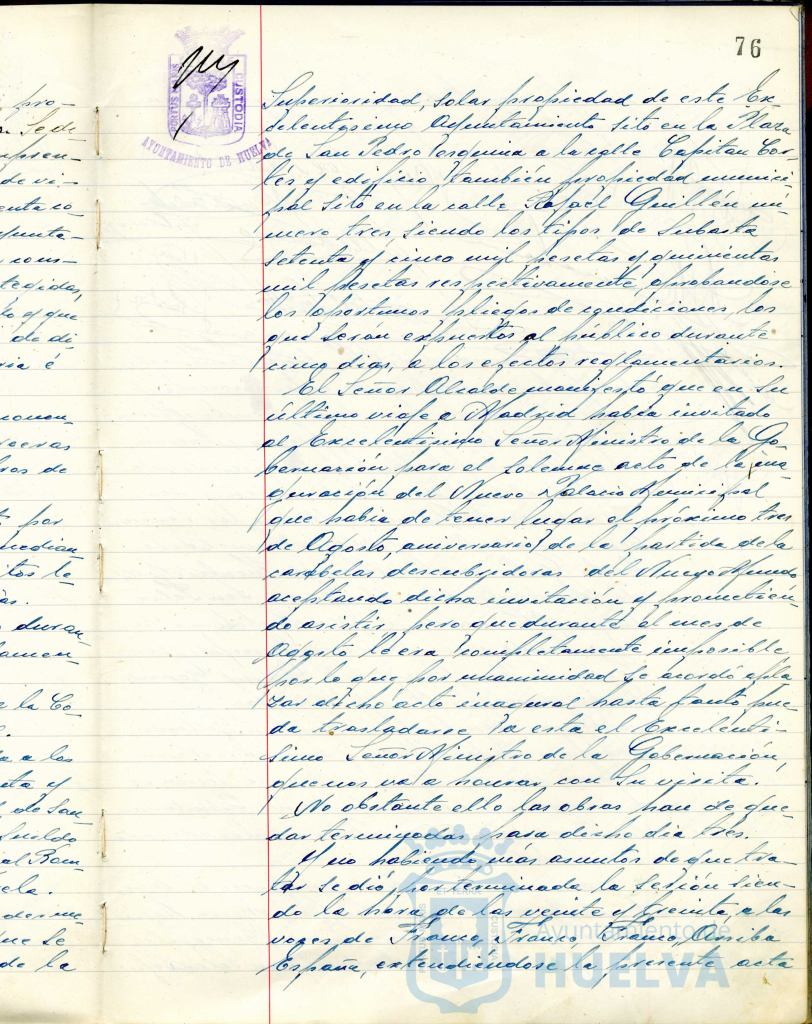 76
PORTUS MARIS
CUSTODIA
AYUNTAMIENTO DE HUELVA
Superioridad, solar propiedad de este Ex-
celentísimo Ayuntamiento sito en la Plaza
de San Pedro esquina a la calle Capitan Cor-
tés y edificio también propiedad munici-
pal sito en la calle Rafael Guillén nú-
mero tres, siendo los tipos de Subasta
setenta y cinco mil pesetas y quinientas
mil pesetas respectivamente, aprobandose
los oportunos pliegos de condiciones, los
que serán expuestos al público durante
cinco dias, a los efectos reglamentarios.
El Señor Alcalde manifestó que en su
último viaje a Madrid habia invitado
al Excelentisimo Señor Ministro de la Go-
bernación para el solemne acto de la inau-
guración del Nuevo Palacio Municipal
que habia de tener lugar el próximo tres
de Agosto, aniversario de la partida de la
carabelas descubridoras del Nuevo Mundo
aceptando dicha invitación y prometien-
do asistir, pero que durante el mes de
Agosto le era completamente imposible
por lo que por unanimidad se acordó apla-
zar dicho acto inagural hasta tanto pue-
da trasladarse a esta el Excelenti-
simo Señor Ministro de la Gobernación,
que nos va a honrar con su visita.
No obstante ello las obras han de que-
dar terminadas para dicho dia tres.
Y no habiendo más asuntos de que tra-
tar se dió por terminada la sesión sien-
do la hora de las veinte y treinta, a las
voces de Franco, Franco, Franco, Arriba
España, extendiéndose la presente acta
Ayuntamiento de
HUELVA